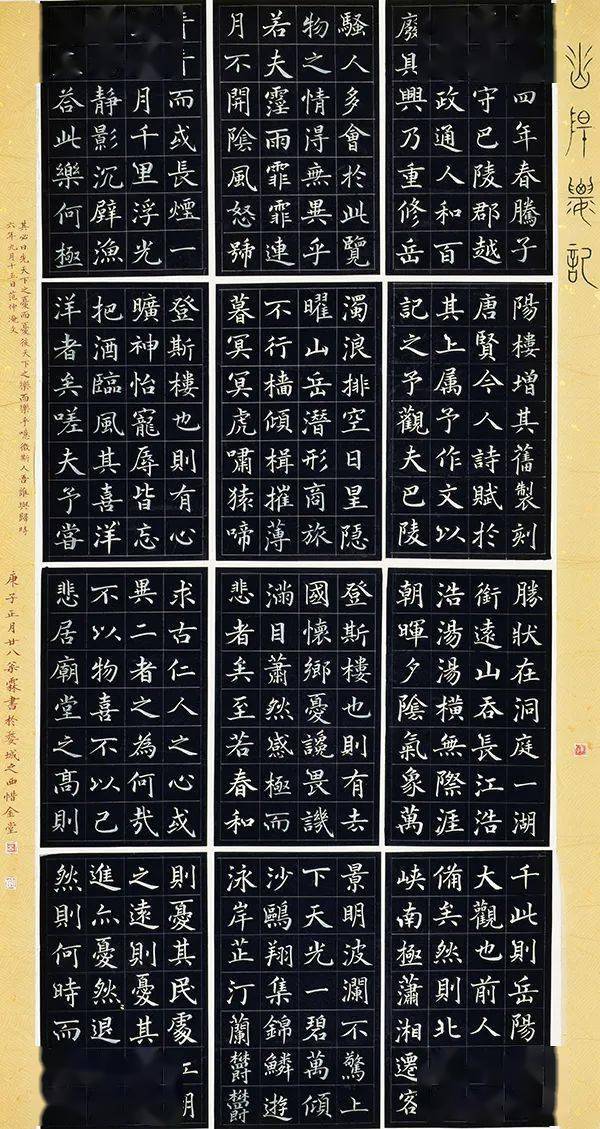 岳陽樓記
四年春騰子
守巴陵郡越
政通人和百
廢具興乃重修岳
陽樓增其舊製刻
唐賢今人詩賦於
其上属予作文以
記之予觀夫巴陵
勝狀在洞庭一湖
銜遠山吞長江浩
浩湯湯橫無際涯
朝暉夕陰氣象萬
千此則岳陽
大觀也前人
備矣然則北
峽南極瀟湘遷客
騷人多會於此覽
物之情得無異乎
若夫霪雨霏霏連
月不開陰風怒號
濁浪排空日星隱
曜山岳潛形商旅
不行檣傾楫摧薄
暮冥冥虎嘯猿啼
登斯樓也則有去
國懷鄉憂讒畏譏
滿目蕭然感極而
悲者矣至若春和
景明波瀾不驚上
下天光一碧萬傾
沙鷗翔集錦鱗遊
泳岸芷汀蘭欝欝
而或長煙一
月千里浮光
靜影沉璧漁
荅此樂何極
登斯樓也則有心
曠神怡寵辱皆忘
把酒臨風其喜洋
洋者矣嗟夫予嘗
求古仁人之心或
異二者之為何哉
不以物喜不以己
悲居廟堂之高則
則憂其民處
之遠則憂其
進亦憂然退
然則何時而
其必曰先天下之憂而憂後天下之樂而樂乎噫微斯人吾誰與歸時
六年九月十五日范仲淹文
庚子正月廿八
書於婺城之西惜金堂